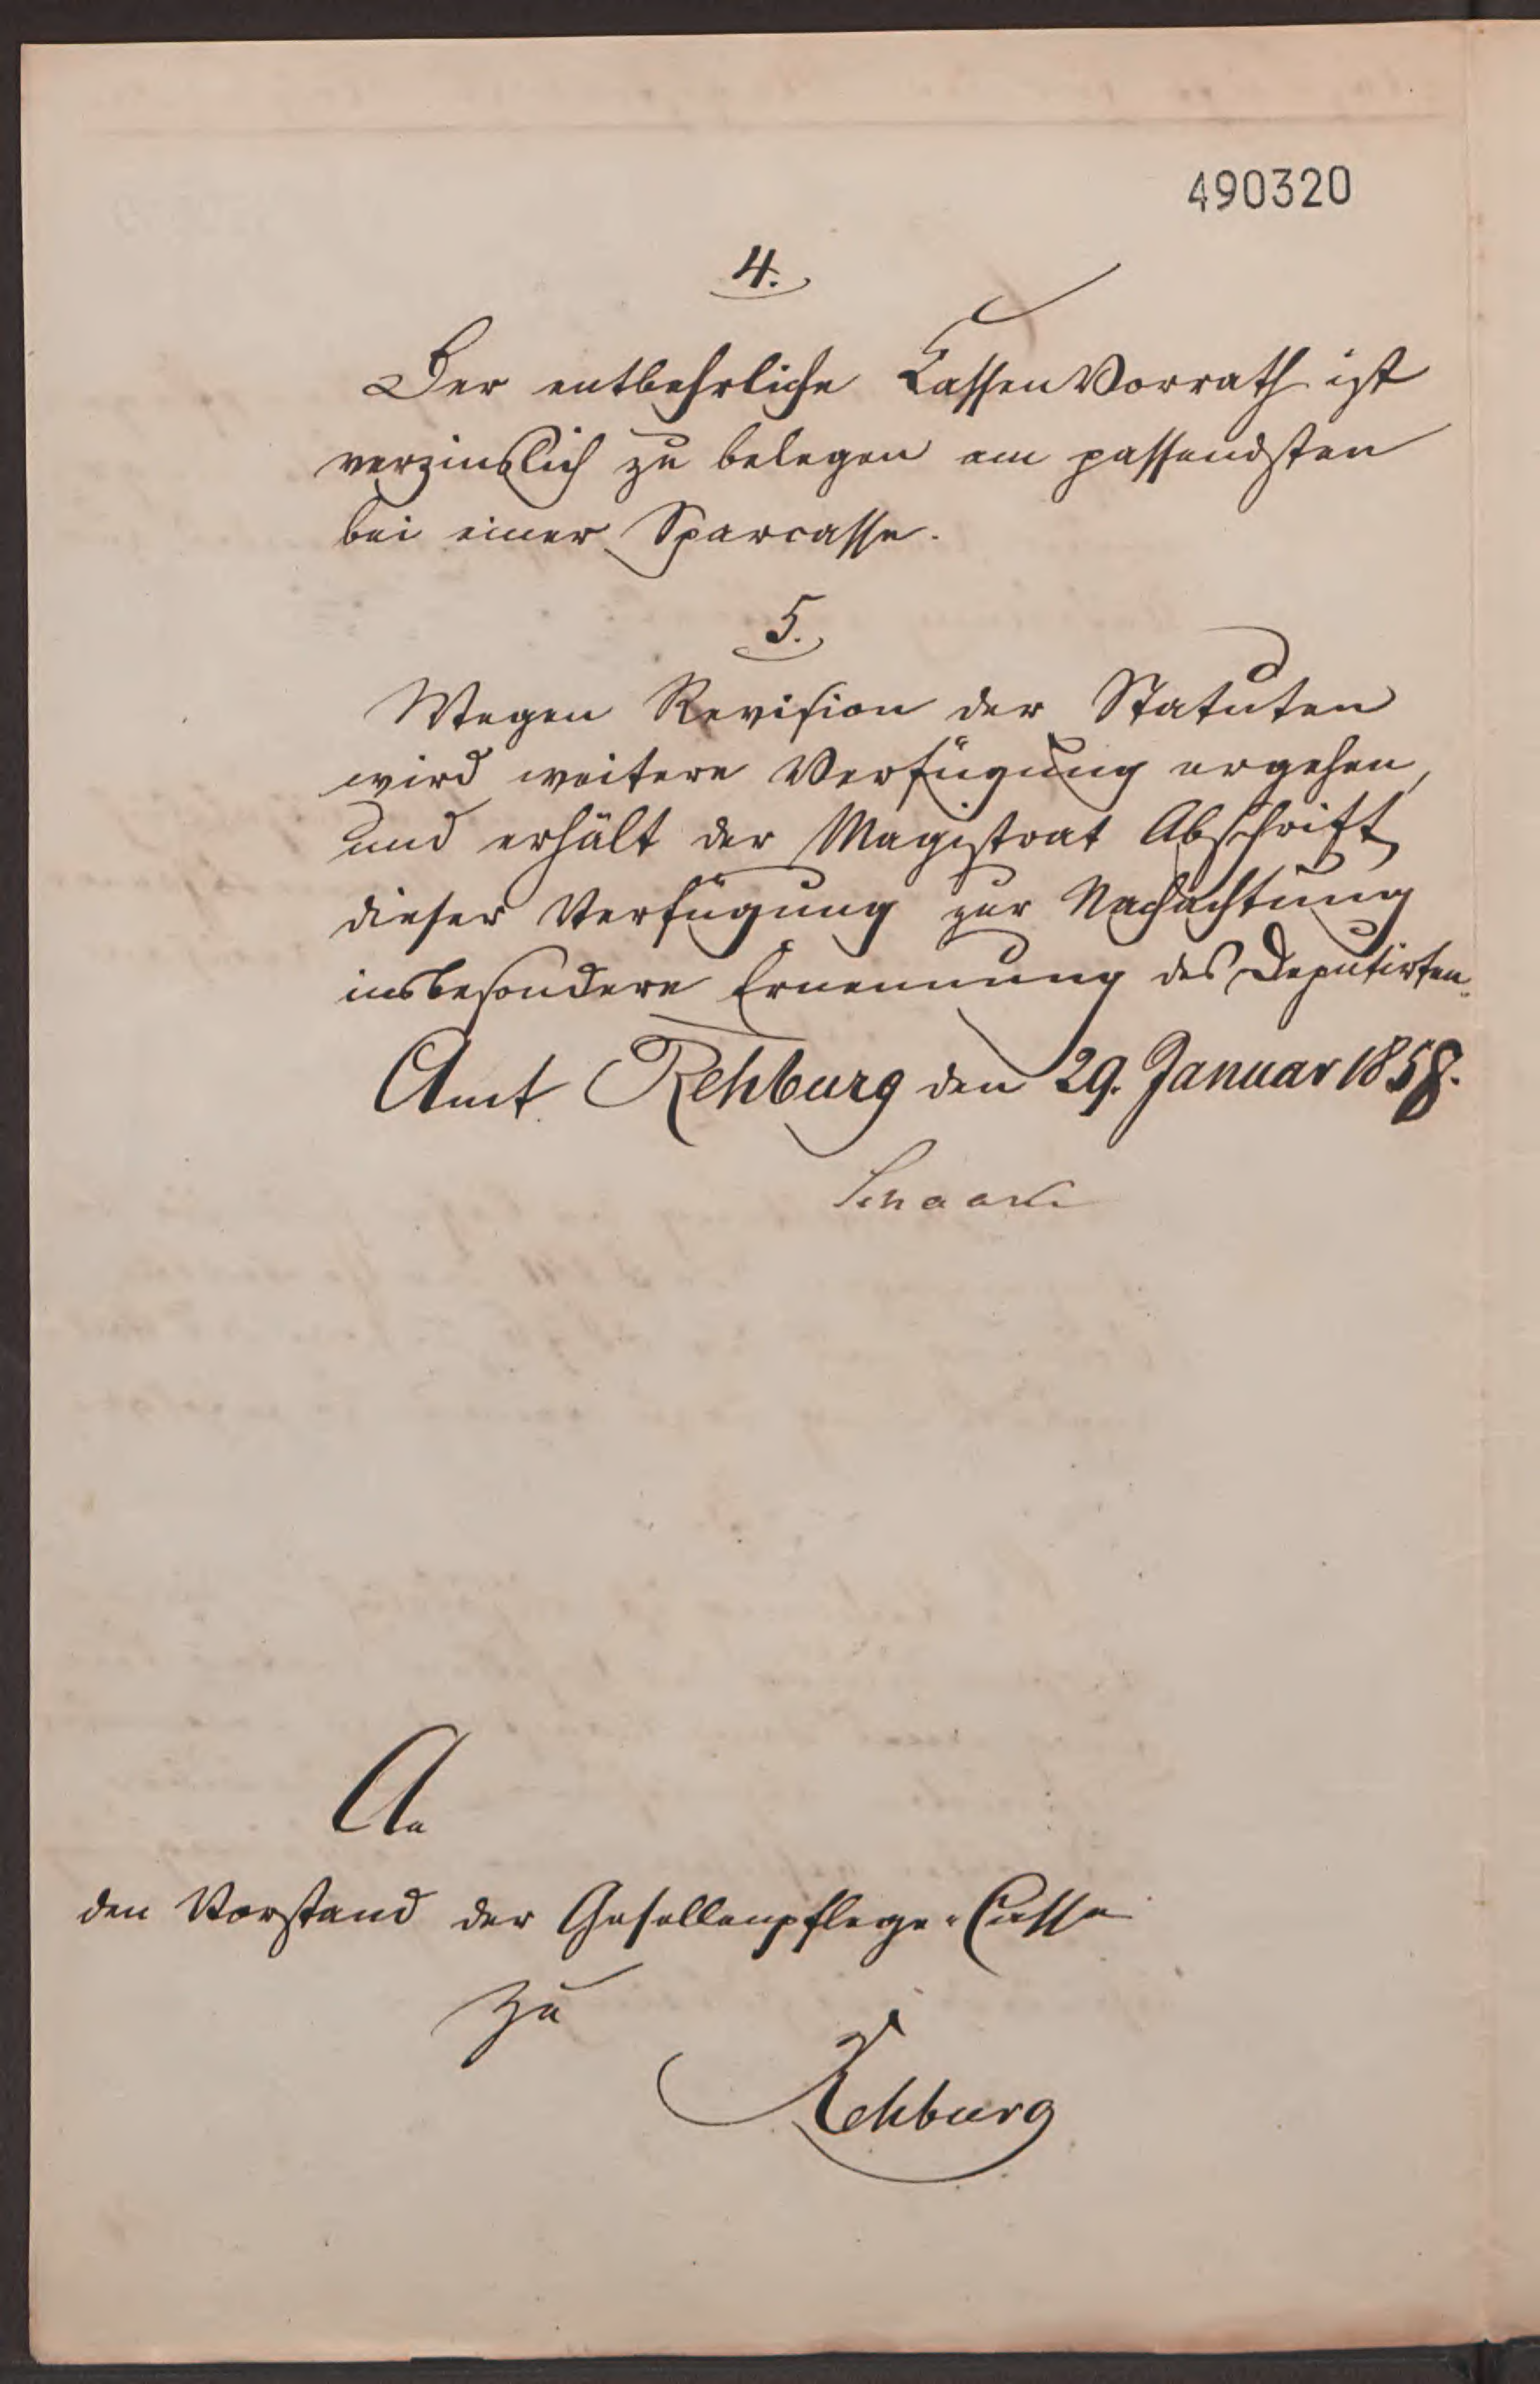 490320
4.
Der entbehrliche Cassen Vorrath ist
verzinslich zu belegen am passendsten
bei einer Sparcasse.
5.
Wegen Revision der Statuten
wird weitere Verfügung ergehen,
und erhält der Magistrat Abschrift
dieser Verfügung zur Nachachtung
insbesondere Ernennung des Deputirten.
Amt Rehburg den 29. Januar 1858.
An
den Vorstand der Gesellenpflege-Casse
zu
Rehburg